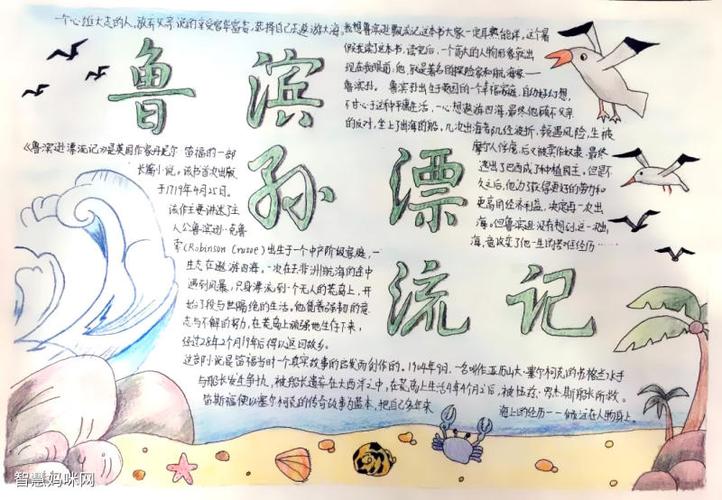 一个心雄大志的人,放弃父亲说的享受安富尊荣,选择自己去遨游大海,
我想鲁滨逊飘流记这本书大家一定耳熟能详,这个暑
假我读了这本书,读完后,一个高大的人物形象就出
现在我眼前,他,就是著名的探险家和航海家——
鲁滨孙。鲁滨孙出生于英国的一个幸福家庭,自幼好幻想,
不甘心于这种平庸生活,一心想遨游四海,最终他顾不父亲
的反对,坐上了出海的船。几次出海都几经波折,频遇风险,生被
摩尔人俘虏,后又被卖作奴隶,最终
逃出了巴西成了种植园主。但是不
久之后,他为了获得更好的劳力和
更高的经济利益,决定再一次出
海。但鲁滨逊没有想到这一次出
海,竟改变了他一生的苦难经历……
鲁滨
孙漂
流记
《鲁滨逊漂流记》是英国作家丹尼尔·笛福的一部
长篇小说。该书首次出版
于1719年4月25日。
该作主要讲述了主
人公鲁滨逊·克鲁
索(Robinson Crusoe)出生于一个中产阶级家庭,一
生志在遨游四海。一次在去非洲航海的途中
遇到风暴,只身漂流到一个无人的荒岛上,开
始了段与世隔绝的生活。他凭着强韧的意
志与不懈的努力,在荒岛上顽强地生存下来,
经过28年2个月19天后得以返回故乡。
这部小说是笛福当时一个真实故事的启发而创作的。1704年9月,一名叫作亚历山大·塞尔柯克的苏格兰水手
与船长发生争执,被船长遗弃在大西洋之中,在荒岛上生活4年4个月之后,被伍兹·罗杰斯船长所救。
笛福便以塞尔柯克的传奇故事为蓝本,把自己多年来
海上的经历一一倾注在人物身上。
智慧妈咪网